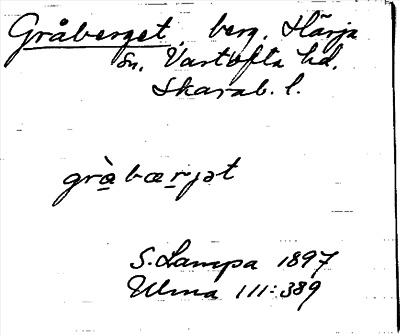 Gråberget, berg, Härja
sn, Vartofta hd,
Skarab. l.
gràbærjət
S. Lampa 1897
Ulma 111:389